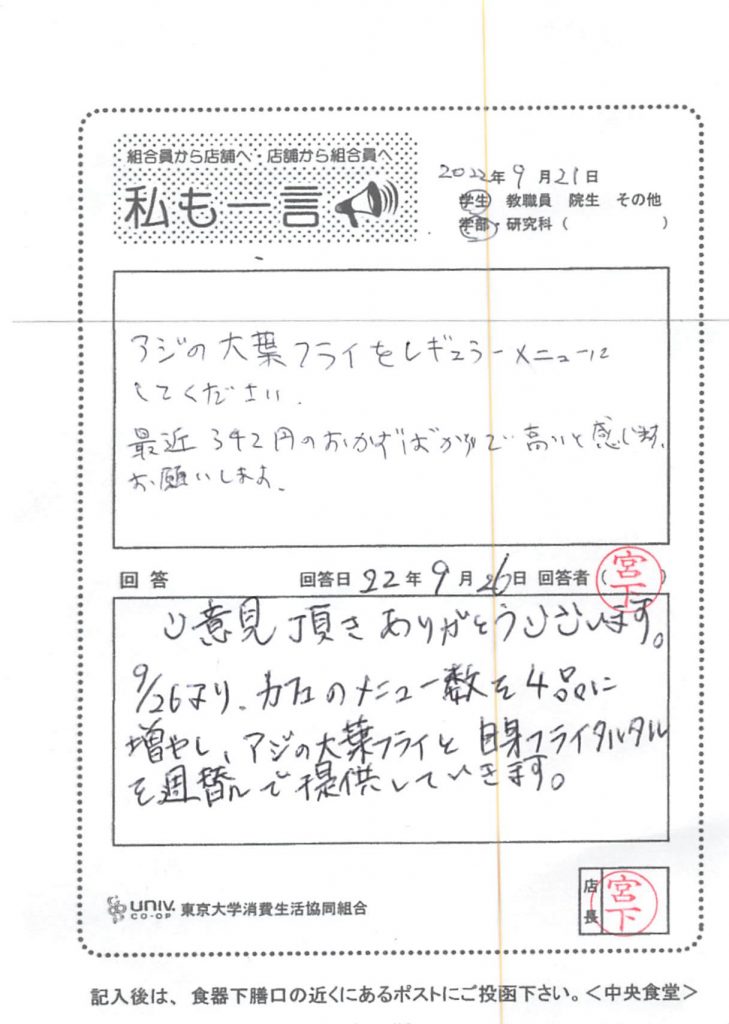 組合員から店舗へ・店舗から組合員へ
私も一言
2022年9月21日
学生 教職員 院生 その他
学部・研究科（ ）
アジの大葉フライをレギュラーメニューに
してください.
最近342円のおかずばかりで高いと感じます.
お願いします.
回答 回答日 22年9月26日 回答者（宮下）
ご意見頂きありがとうございます。
9/26より、カフェのメニュー数を4品に
増やし、アジの大葉フライと白身フライタルタル
を週替りで提供していきます。
UNIV. CO-OP 東京大学消費生活協同組合
店長 宮下
記入後は、食器下膳口の近くにあるポストにご投函下さい。＜中央食堂＞